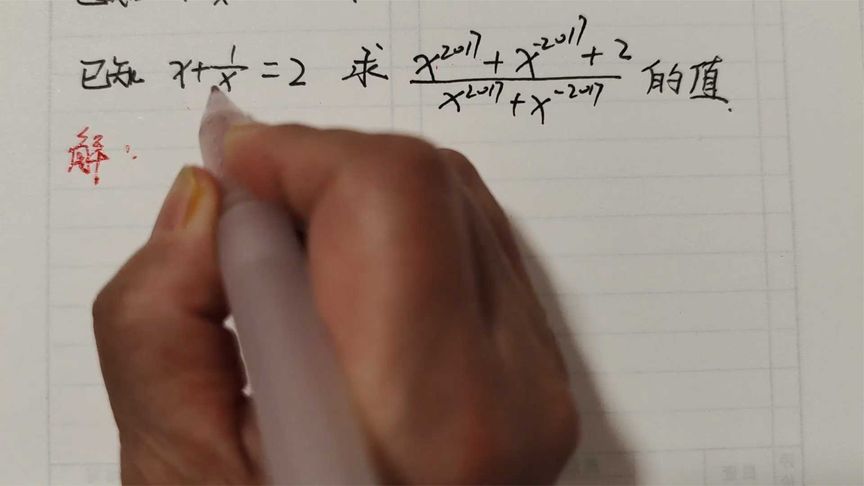 已知 x+1/x=2 求 (x^2017+x^-2017+2)/(x^2017+x^-2017) 的值.
解: